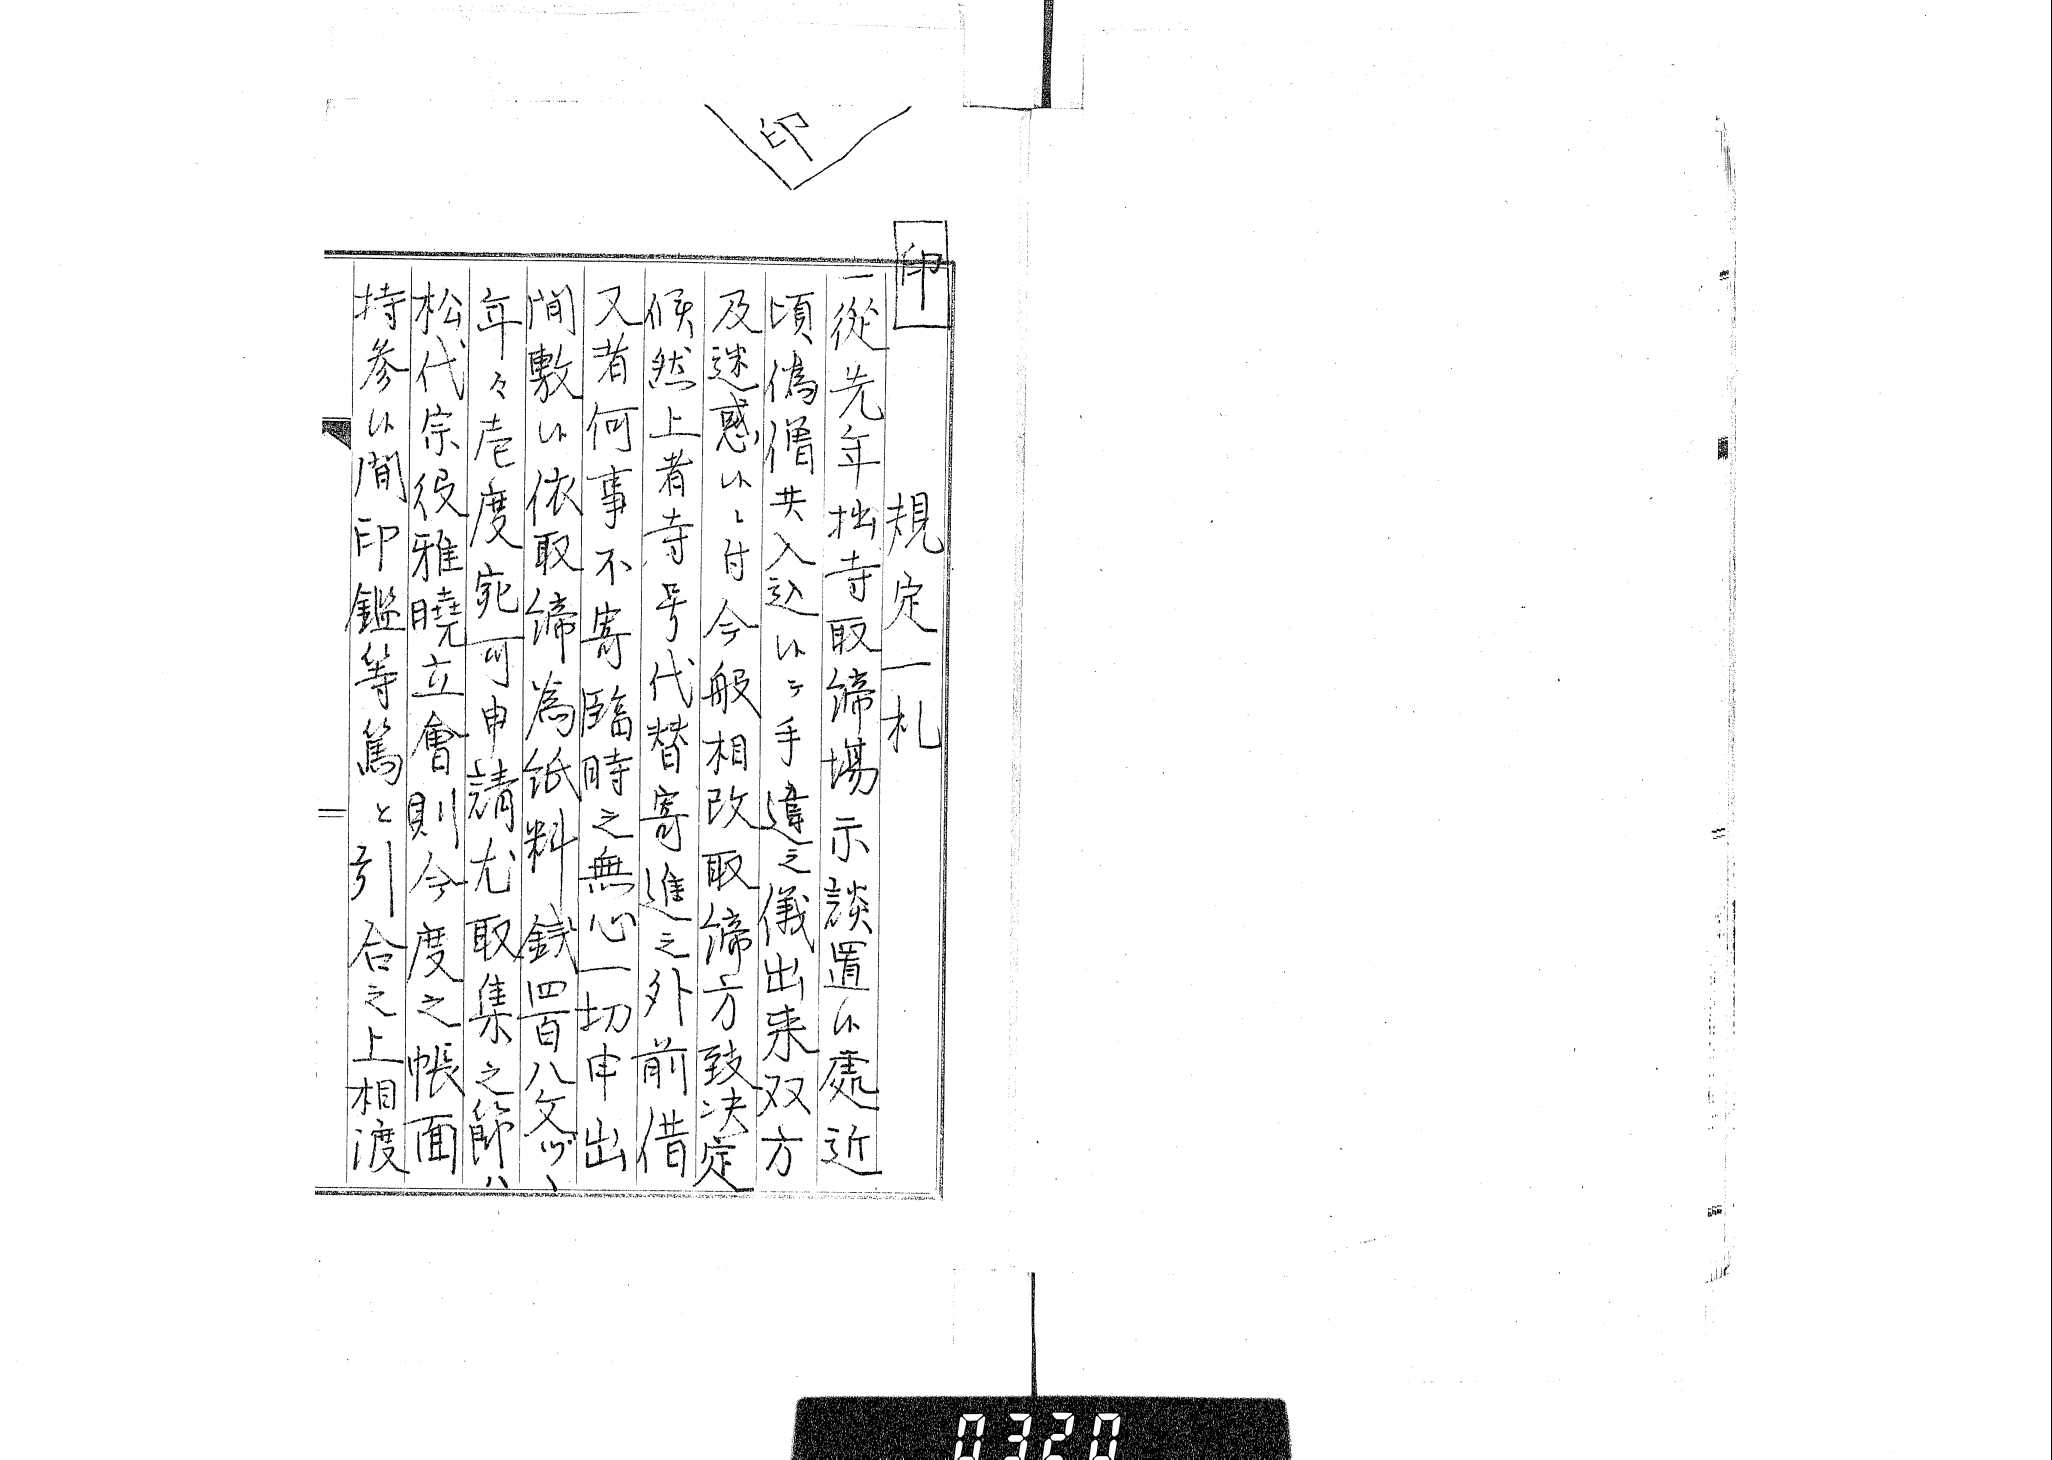 印
印
規定一札
一従先年拙寺取締場示談置候處近
頃偽僧共入込候ニ手違之儀出来双方
及迷惑候ニ付今般相改取締方致决定
候然上者寺号代替寄進之外前借
又者何事不寄臨時之無心一切申出
間敷候依取締為紙料銭四百八文ツヽ
年々壱度宛可申請尤取集之節ハ
松代宗役雅曉立會則今度之帳面
持参候間印鑑等篤と引合之上相渡
0320